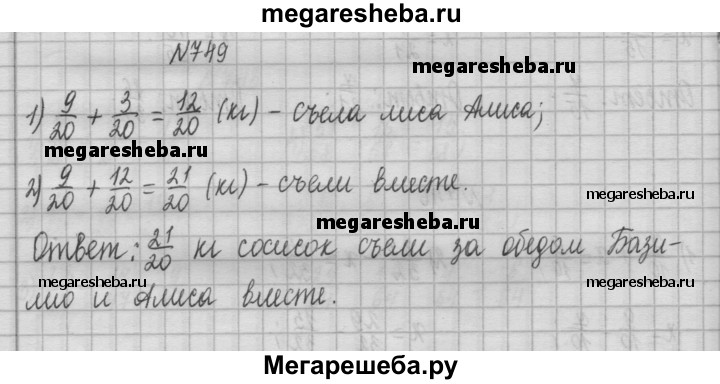 megaresheba.ru
№749
megaresheba.ru
1) 9/20 + 3/20 = 12/20 (кг) - съела лиса Алиса;
megaresheba.ru
2) 9/20 + 12/20 = 21/20 (кг) - съели вместе.
megaresheba.ru
megaresheba.ru
Ответ: 21/20 кг сосисок съели за обедом Бази-
megaresheba.ru
megaresheba.ru
лио и Алиса вместе.
Мегарешеба.ру